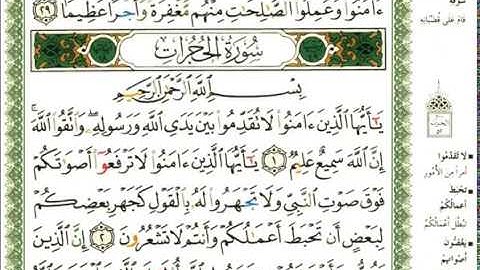 ءَامَنُوا۟ وَعَمِلُوا۟ ٱلصَّٰلِحَٰتِ مِنْهُم مَّغْفِرَةً وَأَجْرًا عَظِيمًۢا ٢٩
سُورَةُ الْحُجُرَاتِ
بِسْمِ ٱللَّهِ ٱلرَّحْمَٰنِ ٱلرَّحِيمِ
يَٰٓأَيُّهَا ٱلَّذِينَ ءَامَنُوا۟ لَا تُقَدِّمُوا۟ بَيْنَ يَدَىِ ٱللَّهِ وَرَسُولِهِۦ ۖ وَٱتَّقُوا۟ ٱللَّهَ ۚ
إِنَّ ٱللَّهَ سَمِيعٌ عَلِيمٌ ١ يَٰٓأَيُّهَا ٱلَّذِينَ ءَامَنُوا۟ لَا تَرْفَعُوٓا۟ أَصْوَٰتَكُمْ
فَوْقَ صَوْتِ ٱلنَّبِىِّ وَلَا تَجْهَرُوا۟ لَهُۥ بِٱلْقَوْلِ كَجَهْرِ بَعْضِكُمْ
لِبَعْضٍ أَن تَحْبَطَ أَعْمَٰلُكُمْ وَأَنتُمْ لَا تَشْعُرُونَ ٢ إِنَّ ٱلَّذِينَ
قَامَ عَلَى قُضْبَانِهِ
الحزب
٥٢
لَا تُقَدِّمُوا
أمرًا من الأمور
تَحْبَطَ
أَعْمَالُكُمْ
تَبْطُلَ أَعْمَالُكُمْ
يَغُضُّونَ
أَصْوَاتَهُمْ